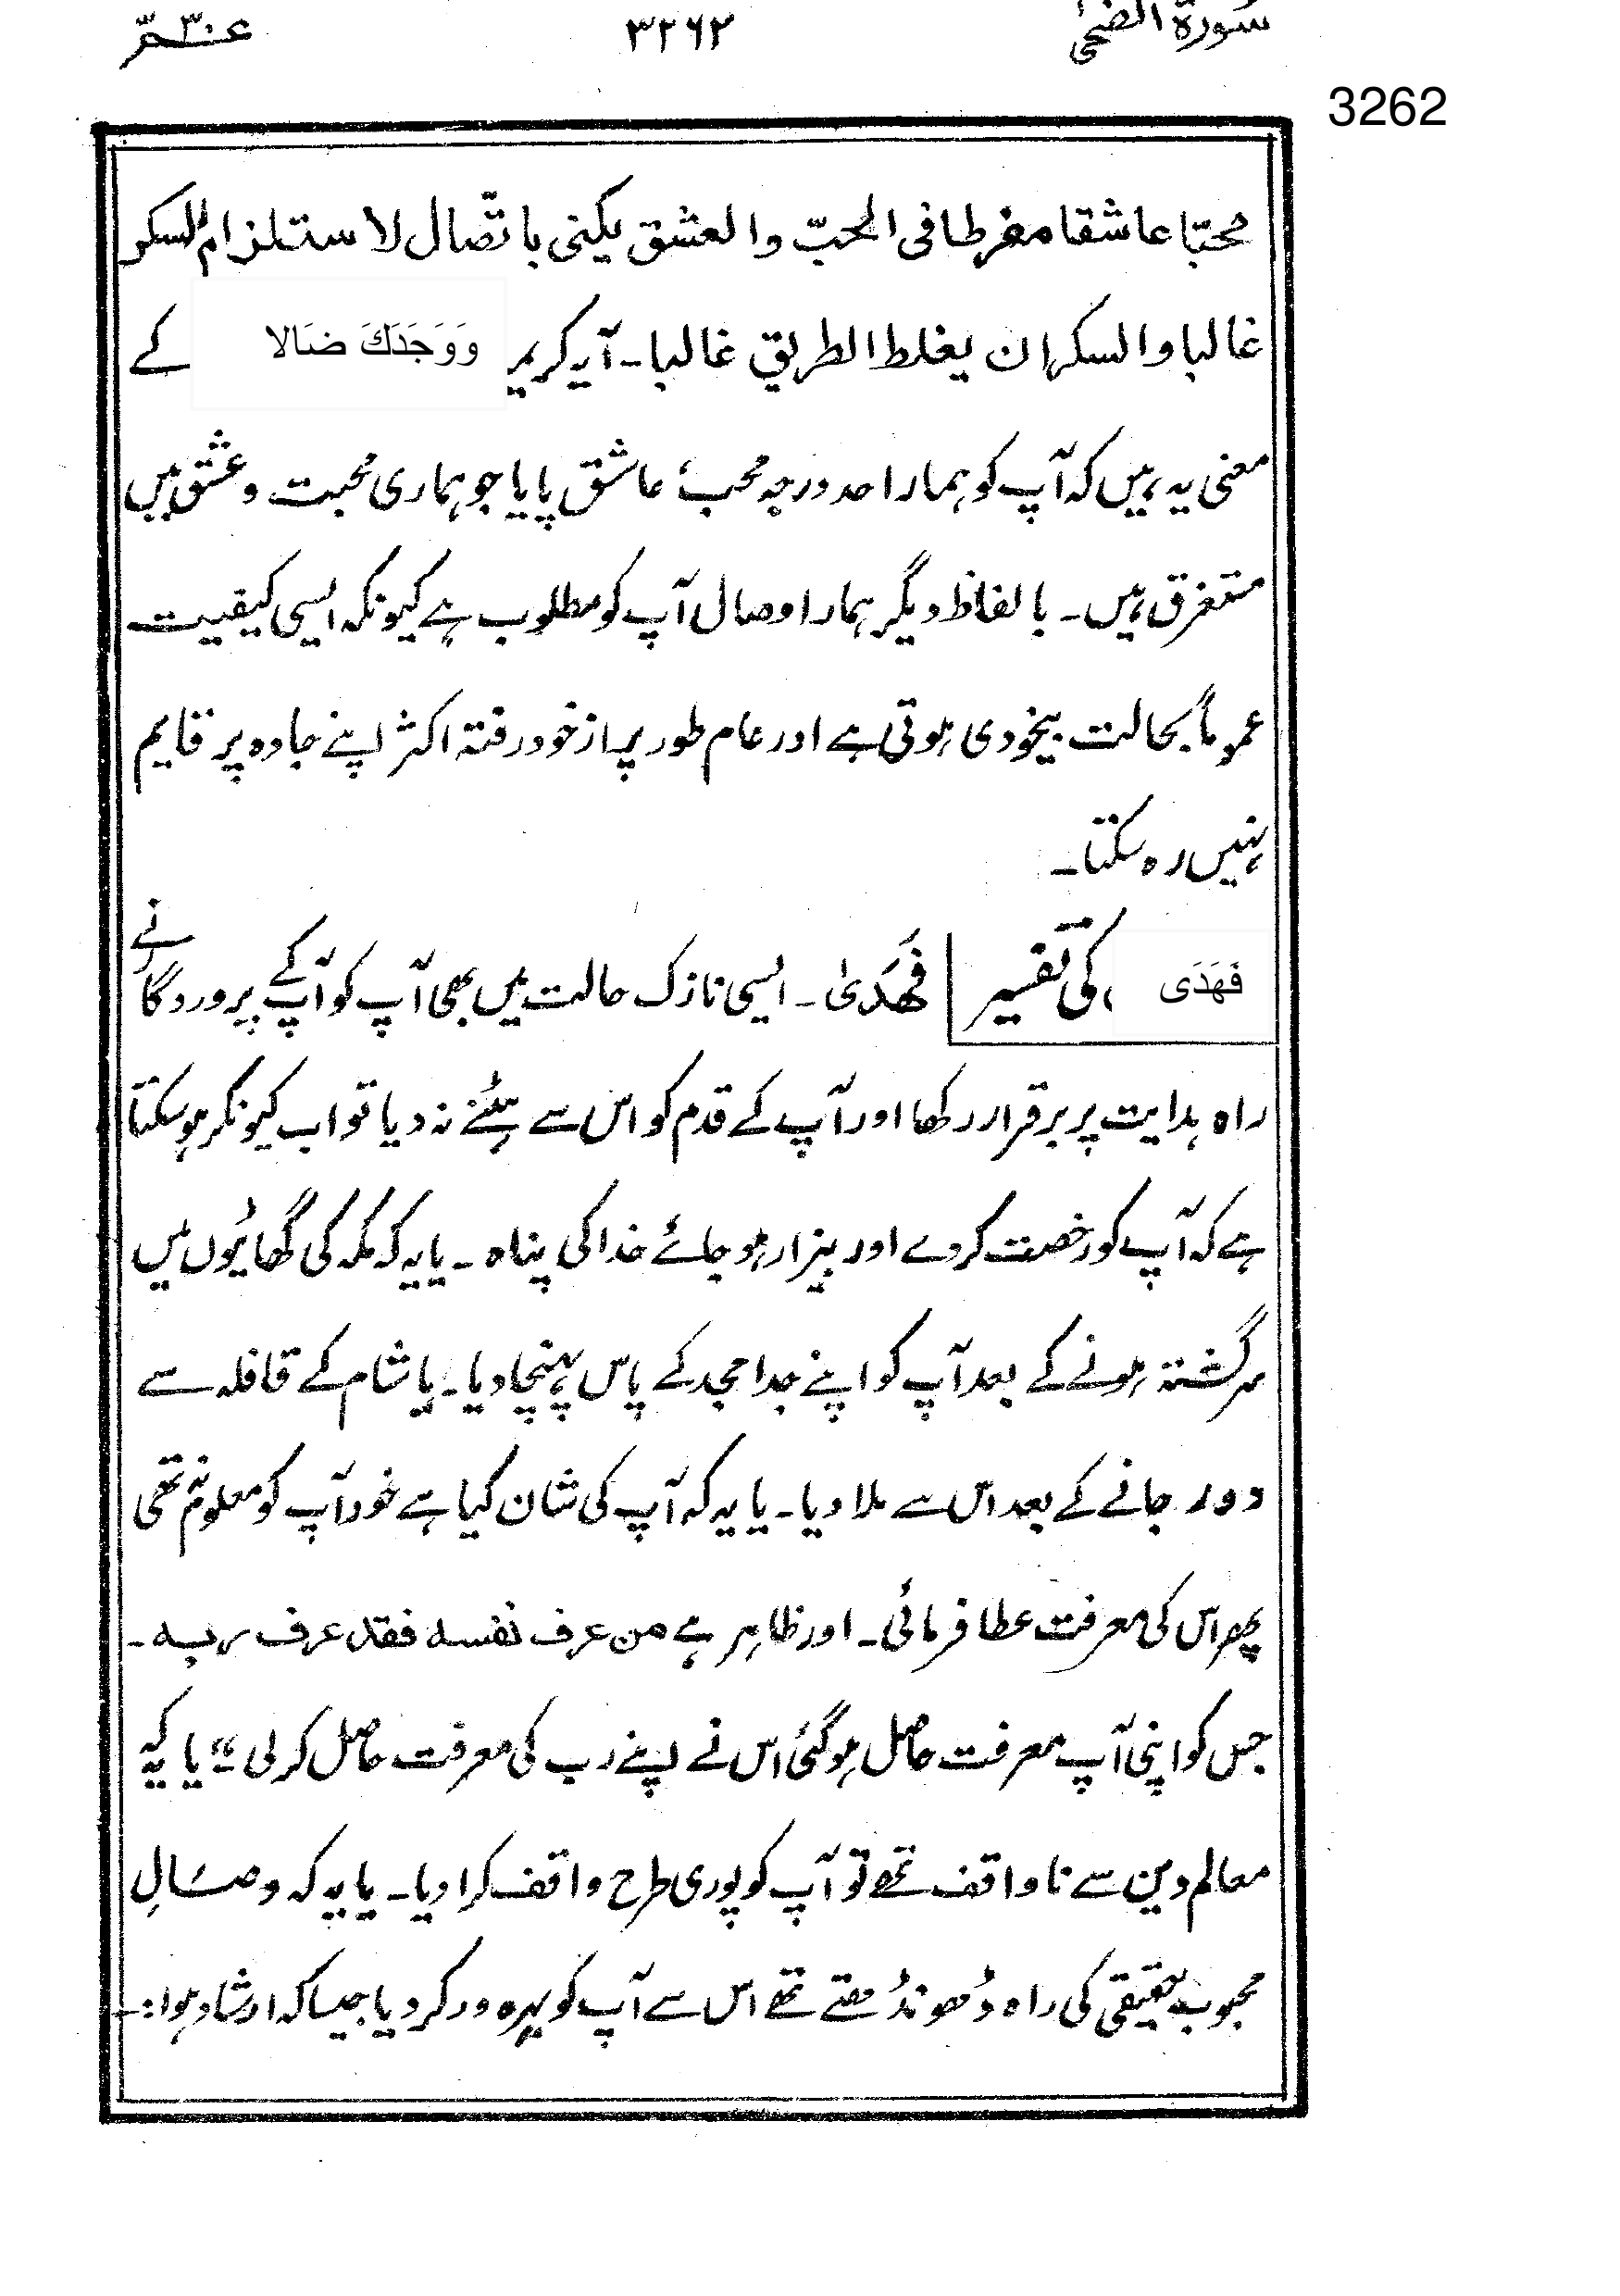 سورۃ الضحیٰ
۳۲۶۲
عـمّ ۳۰
3262
محبّا عاشقا مفرطا فی الحبّ والعشق یکنی باتّصال لاستلزام السکر
غالبا والسکران یغلط الطریق غالبا۔ آیہ کریمہ وَوَجَدَكَ ضَالا کے
معنی یہ ہیں کہ آپ کو ہمارا حد درجہ محب و عاشق پایا جو ہماری محبت و عشق میں
مستغرق ہیں۔ بالفاظ دیگر ہمارا وصال آپ کو مطلوب ہے کیونکہ ایسی کیفیت
عموماً بحالت بیخودی ہوتی ہے اور عام طور پر از خود رفتہ اکثر اپنے جادہ پر قایم
نہیں رہ سکتا۔
فَهَدَى کی تفسیر
فَهَدیٰ۔ ایسی نازک حالت میں بھی آپ کو آپ کے پروردگار نے
راہ ہدایت پر برقرار رکھا اور آپ کے قدم کو اس سے ہٹنے نہ دیا تو اب کیونکر ہوسکتا
ہے کہ آپ کو رخصت کردے اور بیزار ہو جائے خدا کی پناہ۔ یا یہ کہ مکہ کی گھاٹیوں میں
سرگشتہ ہونے کے بعد آپ کو اپنے جد امجد کے پاس پہنچا دیا۔ یا شام کے قافلہ سے
دور جانے کے بعد اس سے ملا دیا۔ یا یہ کہ آپ کی شان کیا ہے خود آپ کو معلوم نہ تھی
پھر اس کی معرفت عطا فرمائی۔ اور ظاہر ہے من عرف نفسه فقد عرف ربه۔
جس کو اپنی آپ معرفت حاصل ہوگئی اس نے اپنے رب کی معرفت حاصل کرلی“ یا یہ کہ
معالم دین سے ناواقف تھے تو آپ کو پوری طرح واقف کرا دیا۔ یا یہ کہ وصَالِ
محبوب حقیقی کی راہ ڈھونڈھتے تھے اس سے آپ کو بہرہ ور کر دیا جیسا کہ ارشاد ہوا:۔